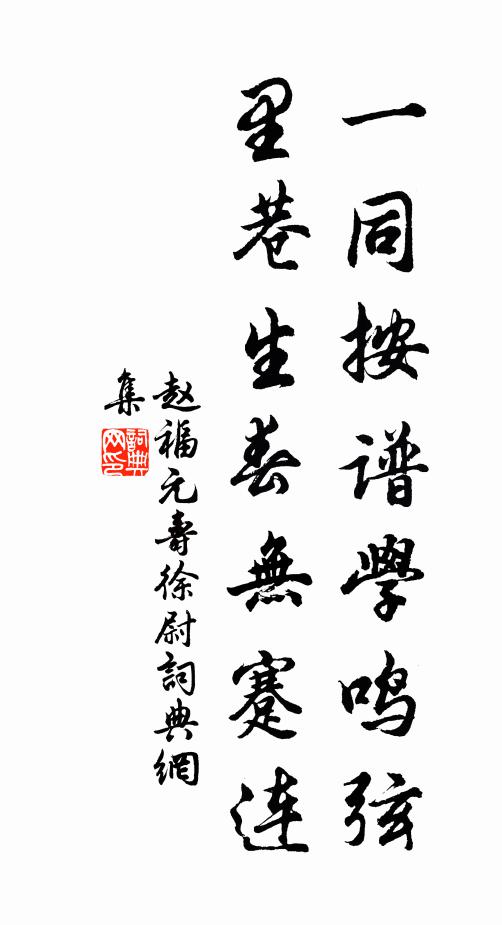 一同按谱學鸣弦
里巷生春無蹇连
赵福元壽徐尉詞典網
集
詞典网印